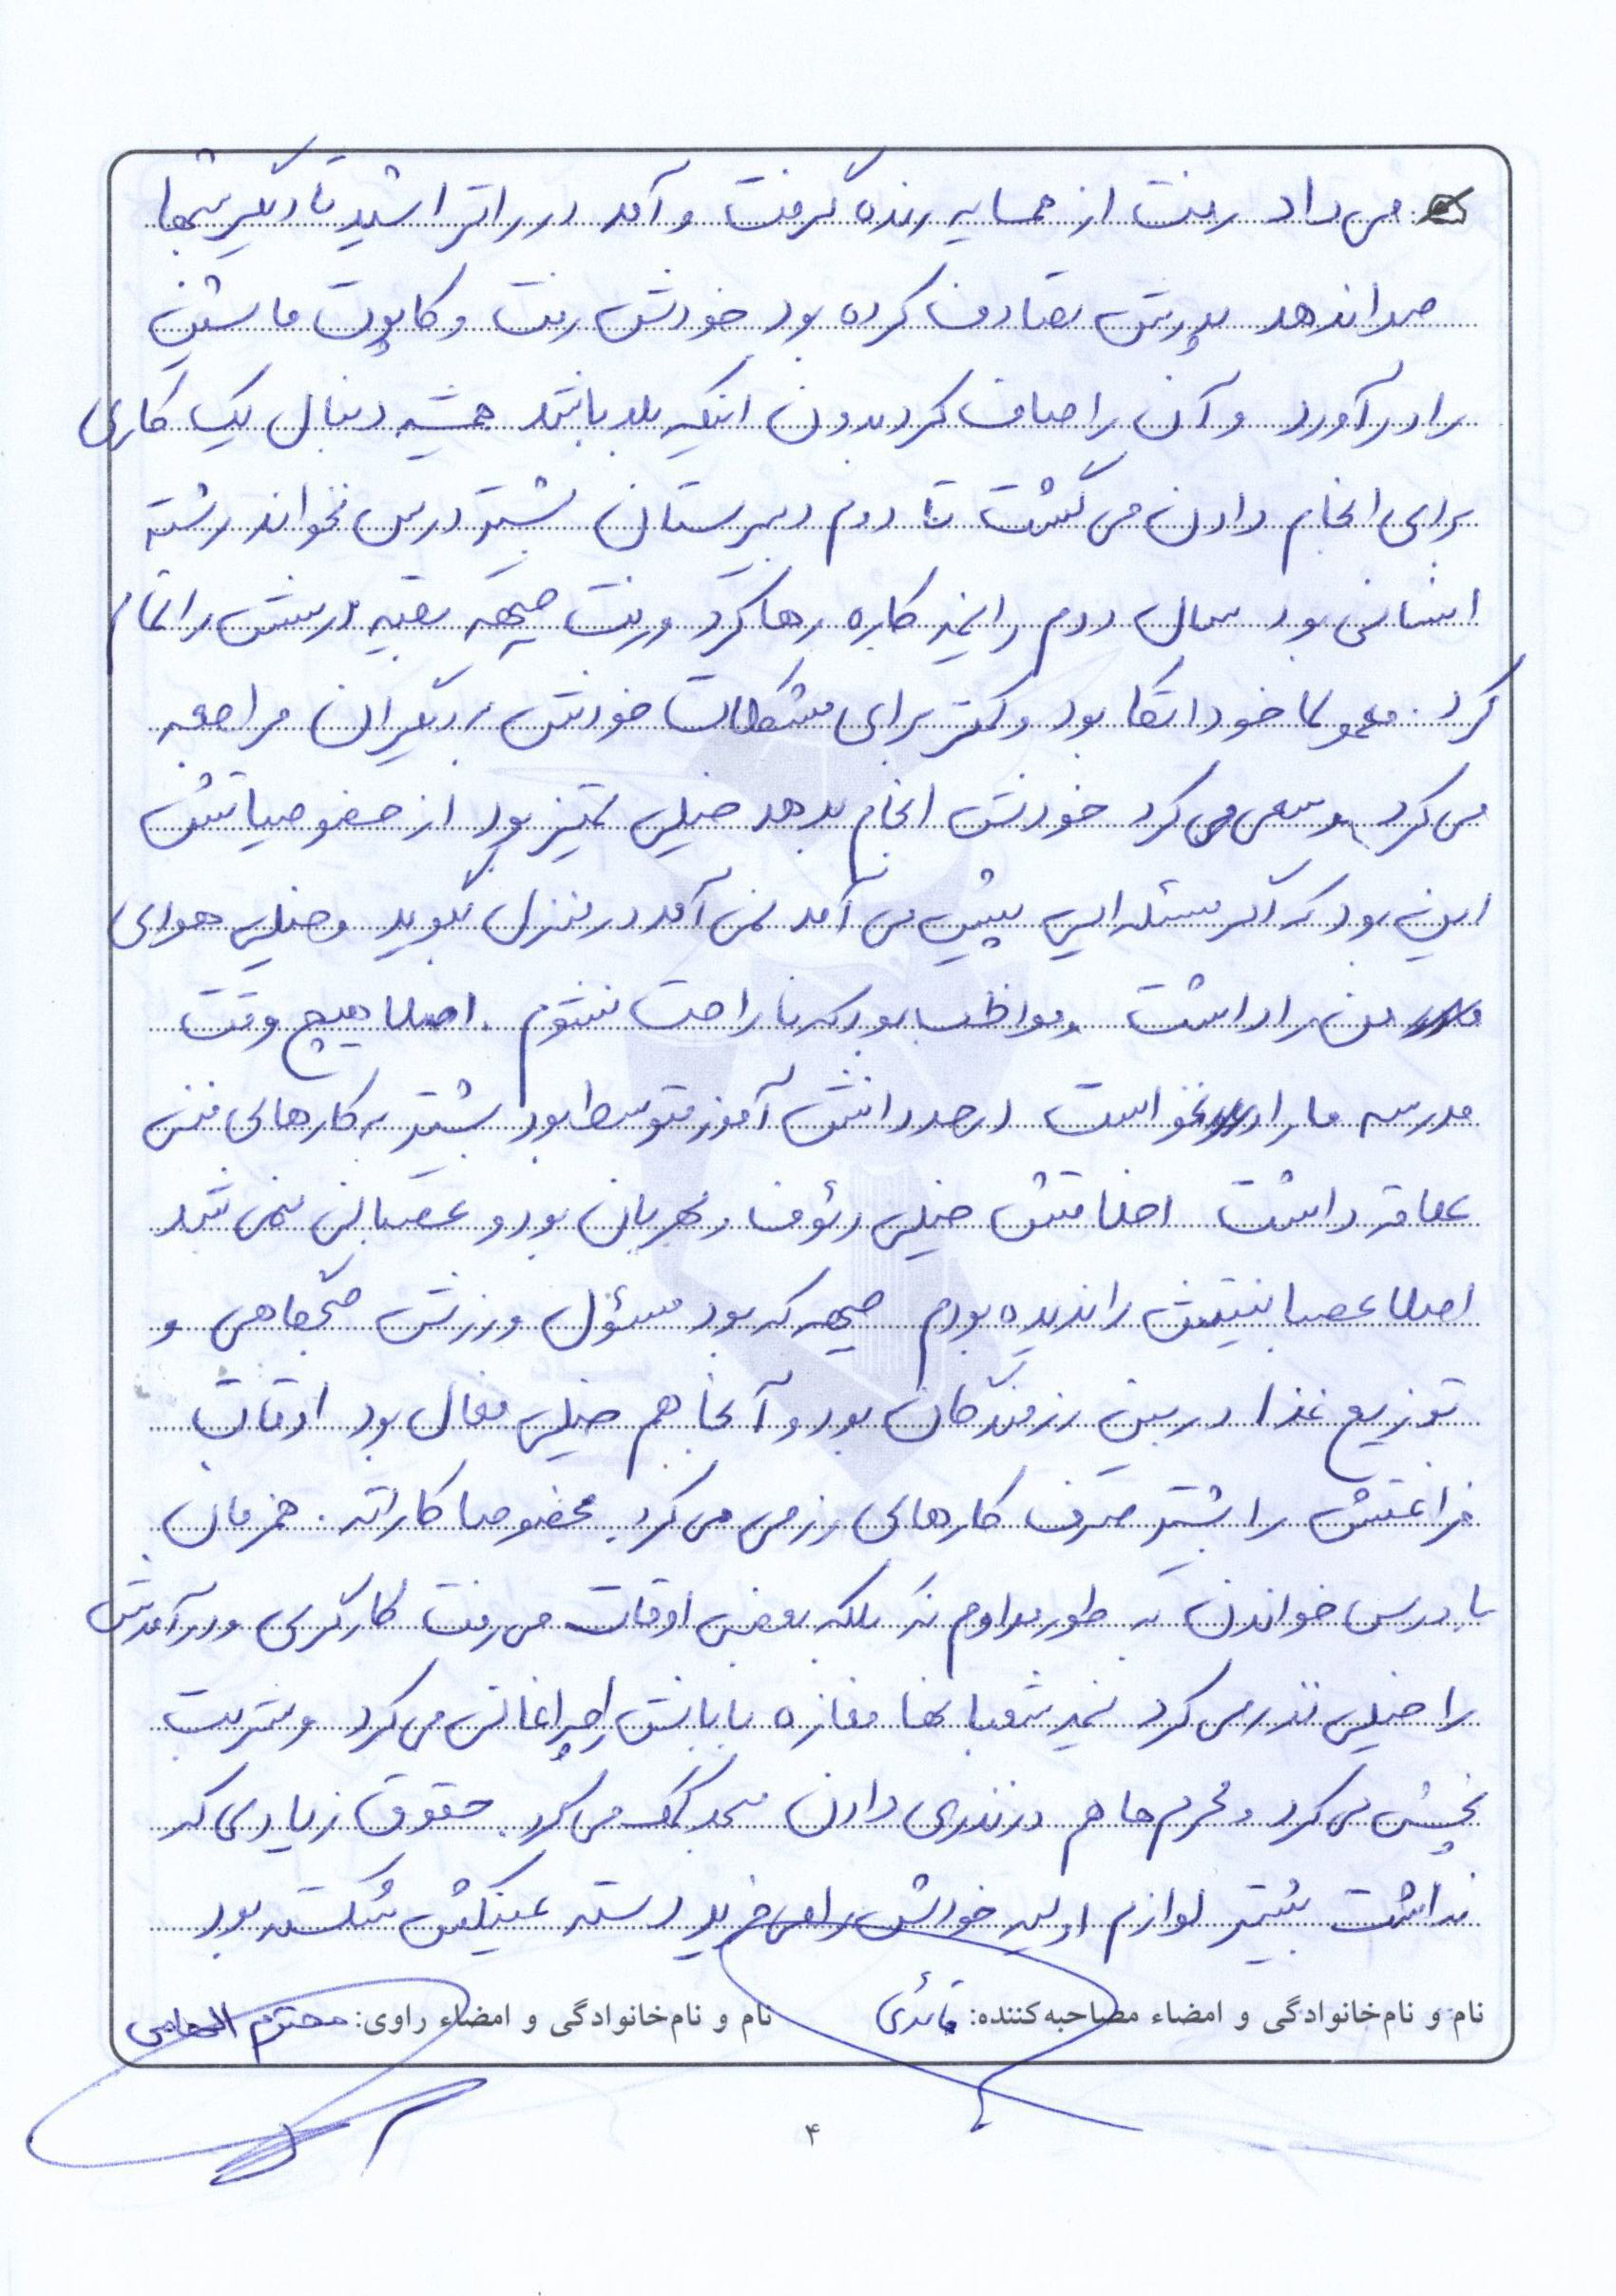 می‌داد رفت از همسایه رنده گرفت و آمد در را تراشید تا دیگر شبها
صدا ندهد پدرش تصادف کرده بود خودش رفت و کاپوت ماشین
را در آورد و آن را صاف کرد بدون اینکه بلد باشد همیشه دنبال یک کاری
برای انجام دادن می‌گشت تا دوم دبیرستان بیشتر درس نخواند رشته
انسانی بود سال دوم را نیمه کاره رها کرد و رفت جبهه بقیه درسش را تمام
کرد. معمولا خود اتکا بود و کمتر برای مشکلات خودش به دیگران مراجعه
می‌کرد و سعی می‌کرد خودش انجام بدهد خیلی تمیز بود از خصوصیاتش
این بود که اگر مسئله ایی پیش می آمد نمی آمد در منزل بگوید و خیلی هوای
من را داشت و مواظب بود که ناراحت نشوم. اصلا هیچ وقت
مدرسه ما را نخواست در حد دانش آموز متوسط بود بیشتر به کارهای فنی
علاقه داشت اخلاقش خیلی رئوف و مهربان بود و عصبانی نمی شد
اصلا عصبانیتش را ندیده بودم جبهه که بود مسؤل ورزش صبحگاهی و
توزیع غذا در بین رزمندگان بود و آنجا هم خیلی فعال بود اوقات
فراغتش را بیشتر صرف کارهای رزمی می‌کرد مخصوصا کاراته. همزمان
با درس خواندن به طور مداوم نه بلکه بعضی اوقات می رفت کارگری و درآمدش
را خیلی نذر می کرد نیمه شعبا نها مغازه بابایش را چراغانی می کرد و شربت
پخش می کرد و محرم ها هم در نذری دادن مسجد کمک می کرد. حقوق زیادی که
نداشت بیشتر لوازم اولیه خودش را می خرید دسته عینکش شکسته بود
نام و نام‌خانوادگی و امضاء مصاحبه‌کننده: قائدی نام و نام‌خانوادگی و امضاء راوی: محترم الهامی
۴